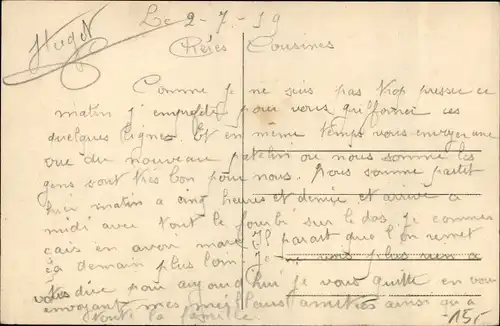 Huget
Le 2-7-19
Chères Cousines
Comme je ne suis pas trop presse ce
matin j'en profite pour vous griffonner ces
quelques lignes. Et en même temps vous envoyer une
vue du nouveau patelin ou nous somme les
gens sont très bon pour nous. Nous somme partit
hier matin a cinq heures et demie et arrivé a
midi avec tout le fourbi sur le dos. Je commen
cais en avoir mare. Il parait que l'on remet
ça demain plus loin. Je ne vois plus rien a
vous dire pour aujourd'hui je vous quitte en vous
envoyant mes meilleurs amitiés ainsi qu'a
toute la famille.
15